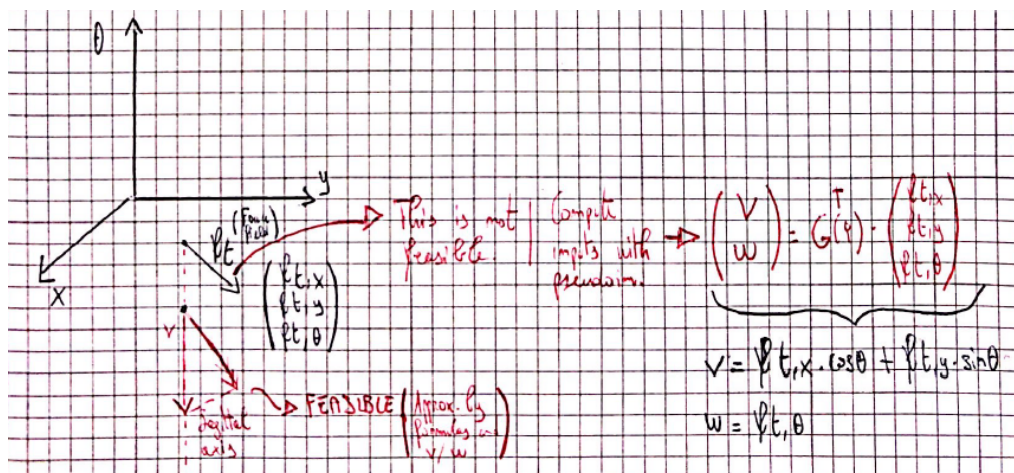 θ
y
x
ft (Force Field)
(ft,x
ft,y
ft,θ)
This is not
feasible.
Compute
inputs with
pseudoinv.
(V
W) = G(q)ᵀ · (ft,x
ft,y
ft,θ)
V = ft,x · cosθ + ft,y · sinθ
W = ft,θ
V
Sagittal
axis
FEASIBLE (Approx. by
formulas
V/W)